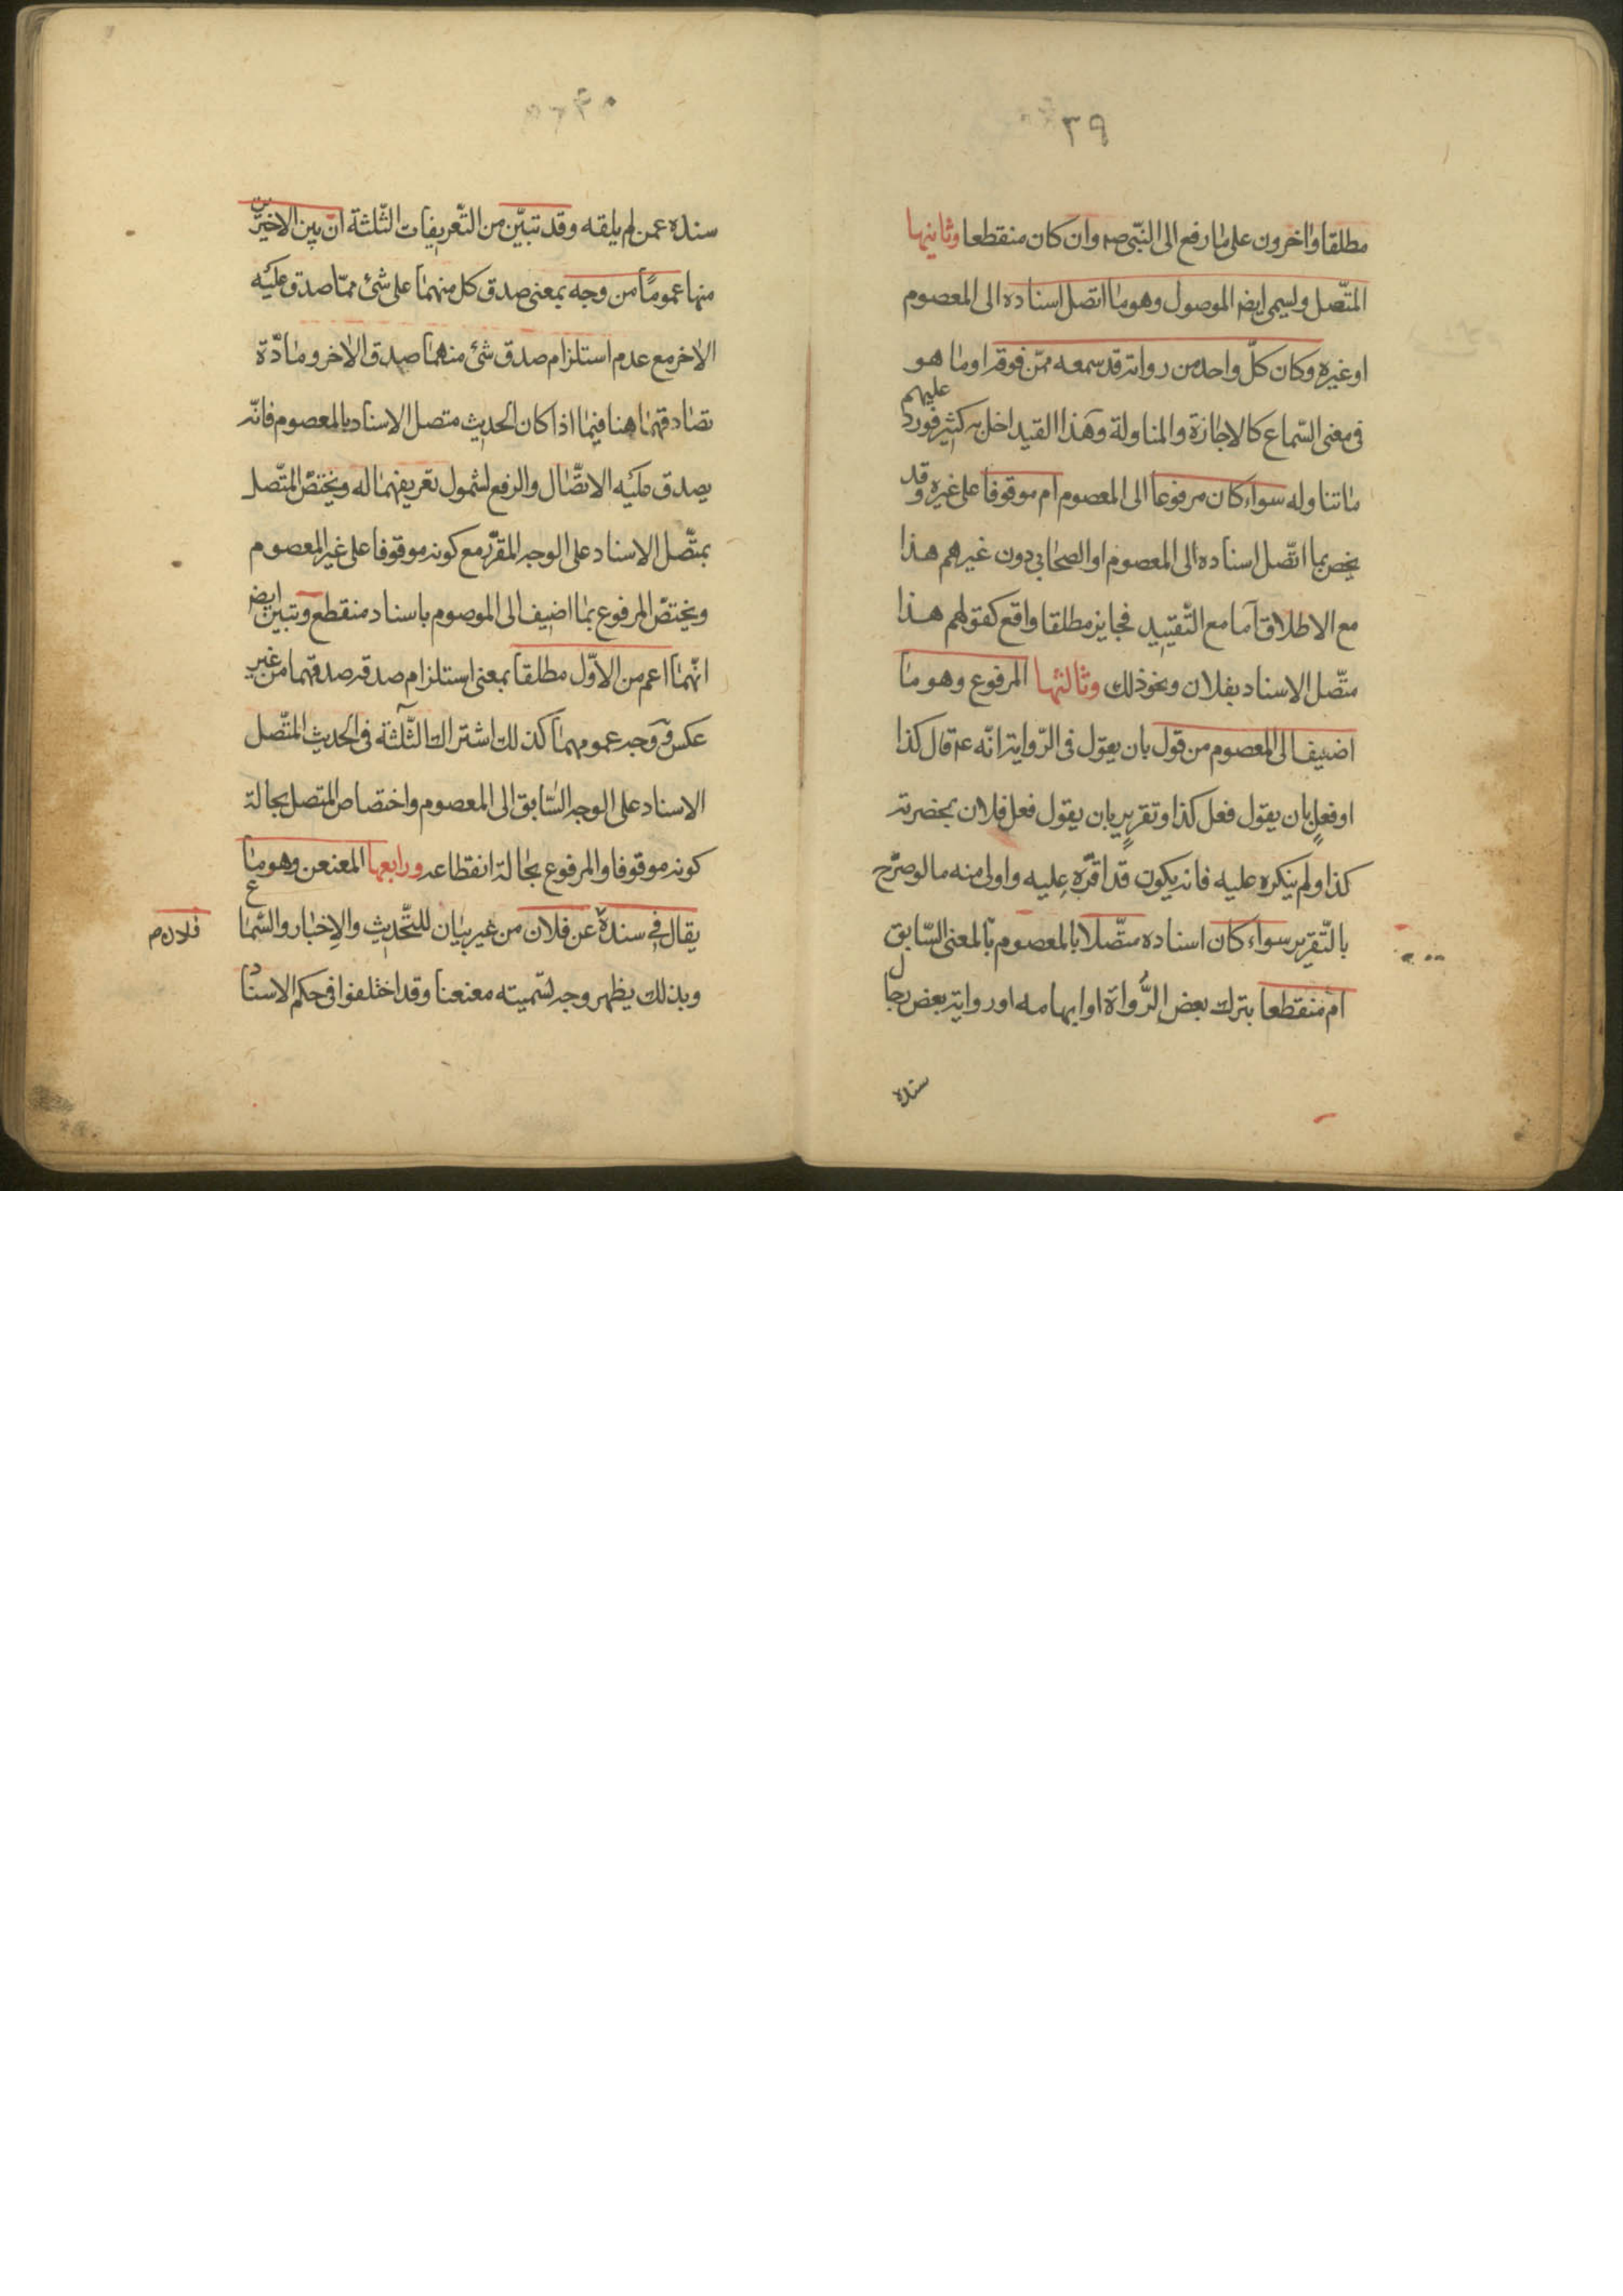 ٣٩
مطلقا واخرون على ما رفع الى النبي صم وان كان منقطعا وثانيها
المتصل ويسمى ايض الموصول وهو ما اتصل اسناده الى المعصوم
او غيره وكان كل واحد من رواته قد سمعه ممن فوقه او ما هو
فى معنى السماع كالاجازة والمناولة وهذا القيد اخل به كثير فورد عليهم
ما تناوله سواء كان مرفوعا الى المعصوم ام موقوفا على غيره وقد
يخص بما اتصل اسناده الى المعصوم او الصحابي دون غيرهم هذا
مع الاطلاق اما مع التقييد فجايز مطلقا واقع كقولهم هذا
متصل الاسناد بفلان ونحو ذلك وثالثها المرفوع وهو ما
اضيف الى المعصوم من قول بان يقول فى الرواية انه عم قال كذا
او فعل بان يقول فعل كذا وتقرير بان يقول فعل فلان بحضرته
كذا ولم ينكره عليه فانه يكون قد اقره عليه واولى منه ما لو صرح
بالتقرير سواء كان اسناده متصلا بالمعصوم بالمعنى السابق
ام منقطعا بترك بعض الرواة او ابهامه او رواية بعض رجال
سنده
سنده عمن لم يلقه وقد تبين من التعريفات الثلثة ان بين الاخيرين
منها عموما من وجه بمعنى صدق كل منهما على شئ مما صدق عليه
الاخر مع عدم استلزام صدق شئ منهما صدق الاخر ومادة
تصادقهما هنا فيما اذا كان الحديث متصل الاسناد بالمعصوم فانه
يصدق عليه الاتصال والرفع لشمول تعريفهما له ويختص المتصل
بمتصل الاسناد على الوجه المقرر مع كونه موقوفا على غير المعصوم
ويختص المرفوع بما اضيف الى الموصوم باسناد منقطع وتبين ايض
انهما اعم من الاول مطلقا بمعنى استلزام صدقه صدقهما من غير
عكس ووجه عمومهما كذلك اشتراك الثلثة فى الحديث المتصل
الاسناد على الوجه السابق الى المعصوم واختصاص المتصل بحالة
كونه موقوفا والمرفوع بحالة انقطاعه ورابعها المعنعن وهو ما
يقال فى سنده عن فلان من غير بيان للتحديث والاخبار والسماع
فلان م
وبذلك يظهر وجه تسميته معنعنا وقد اختلفوا فى حكم الاسناد